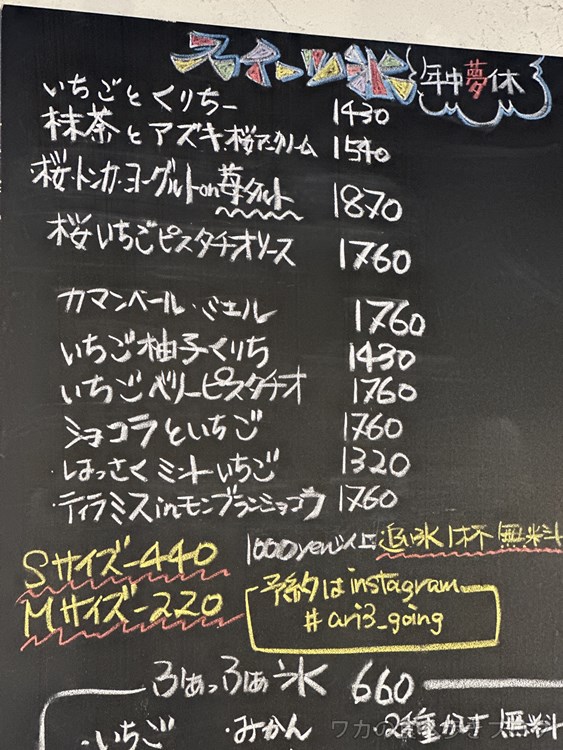 スイーツ氷 年中夢休
いちごとくりちー 1430
抹茶とアズキ桜アンクリーム 1540
桜・トンカ・ヨーグルトon苺タルト 1870
桜いちごピスタチオソース 1760
カマンベール・ミエル 1760
いちご柚子くりち 1430
いちごベリーピスタチオ 1760
ショコラといちご 1760
・はっさくミントいちご 1320
・ティラミスinモンブランショコラ 1760
Sサイズ-440
1000yen以上追い氷1杯無料
Mサイズ-220
予約はinstagram
#ari3_going
ふぁっふぁ氷 660
・いちご ・みかん 2種かけ無料